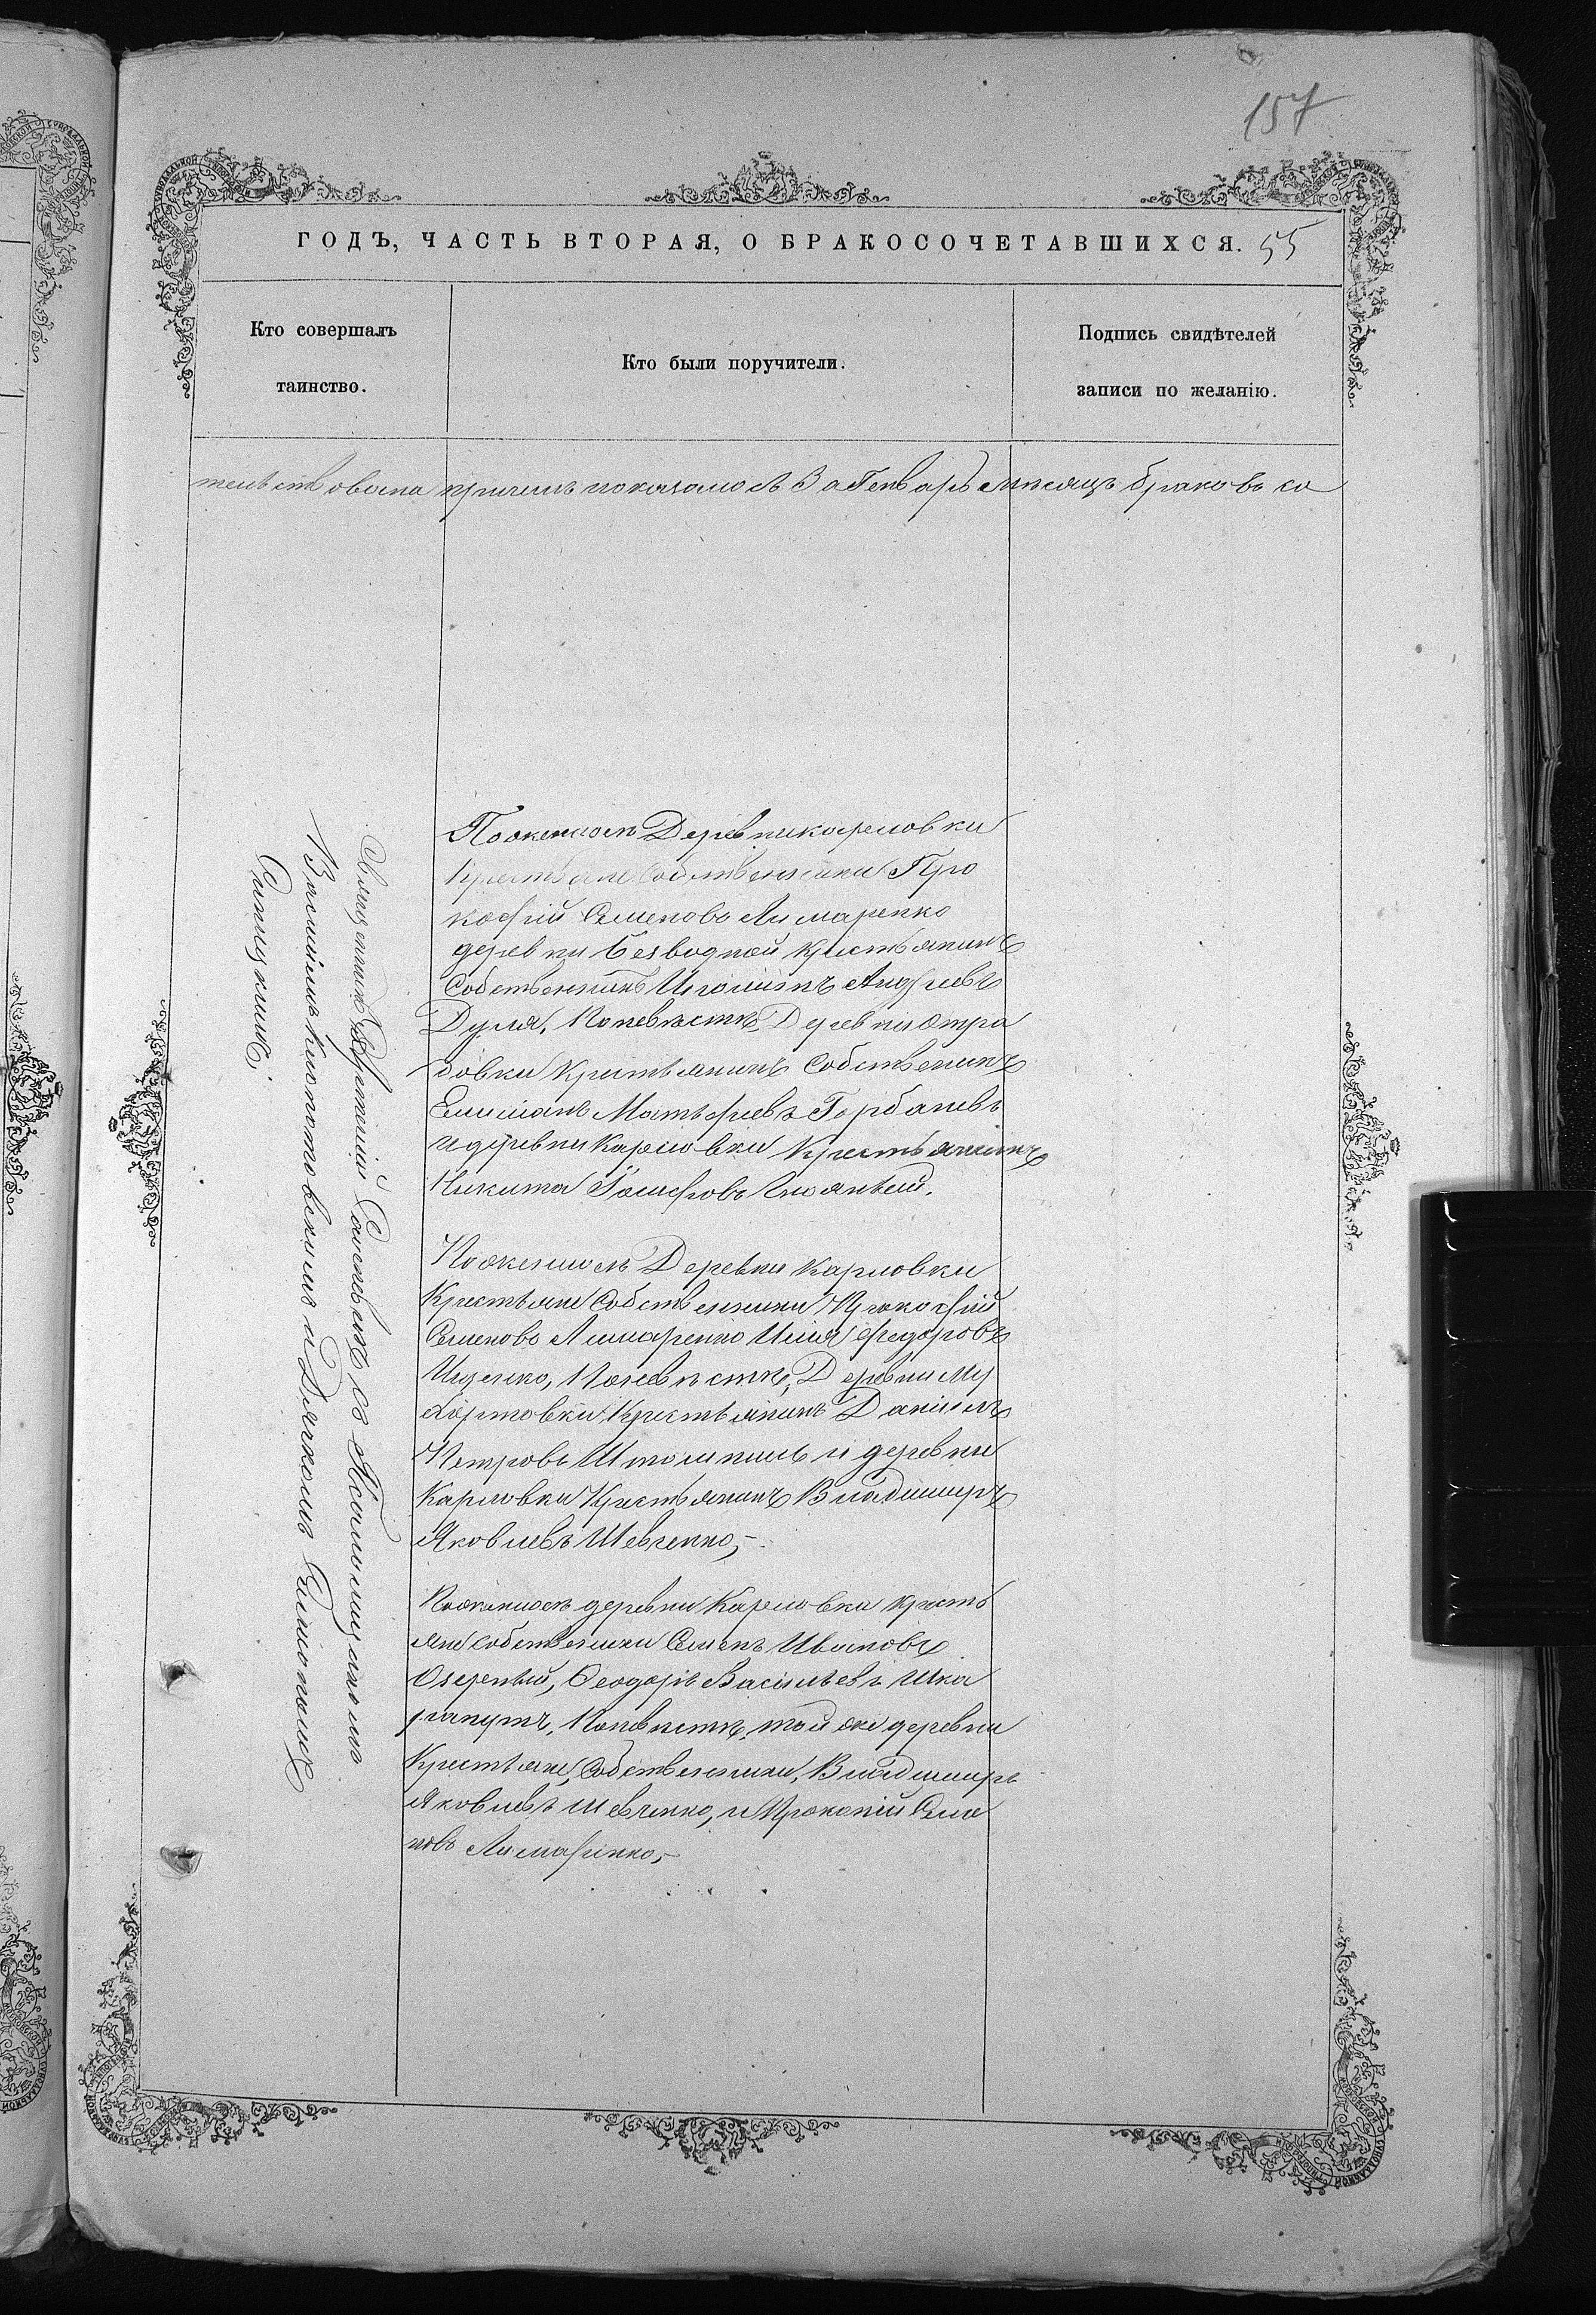 157
ГОДЪ, ЧАСТЬ ВТОРАЯ, О БРАКОСОЧЕТАВШИХСЯ. 55
Кто совершалъ
таинство.
Кто были поручители.
Подпись свидѣтелей
записи по желанію.
причемъ показалось За Генварь мѣсяцъ браковъ со
Священникъ съ Псаломщикомъ
Василіемъ и Дьячкомъ
Синицкимъ.
По женихѣ Деревни Карловки
Крестьяне Собственники Про
кофій Семеновъ Лимаренко
деревни Безводной Крестьянинъ
Собственникъ Андреевъ
Дуля, По невѣстѣ Деревни Отра
довки Крестьянинъ Собственикъ
Емиліанъ Матфѣевъ Горбачевъ
и деревни Карловки Крестьянинъ
Никита Іосифовъ
По женихѣ Деревни Карловки
Крестьяне Собственники Прокофій
Семеновъ Лимаренко Илія Федоровъ
Ищенко, По невѣстѣ, Деревни Му
Крестьянинъ Даніилъ
Петровъ и деревни
Карловки Крестьянинъ Владимиръ
Яковлевъ Шевченко,-
По женихѣ деревни Карловки кресть
яне собственики Семенъ Ивановъ
Озерный, Феодоръ Васильевъ Шка
рапутъ, По невѣстѣ, той же деревни
Крестьяне, Собственники, Владимиръ
Яковлевъ Шевченко, и Прокопій Семе
новъ Лимаренко,-